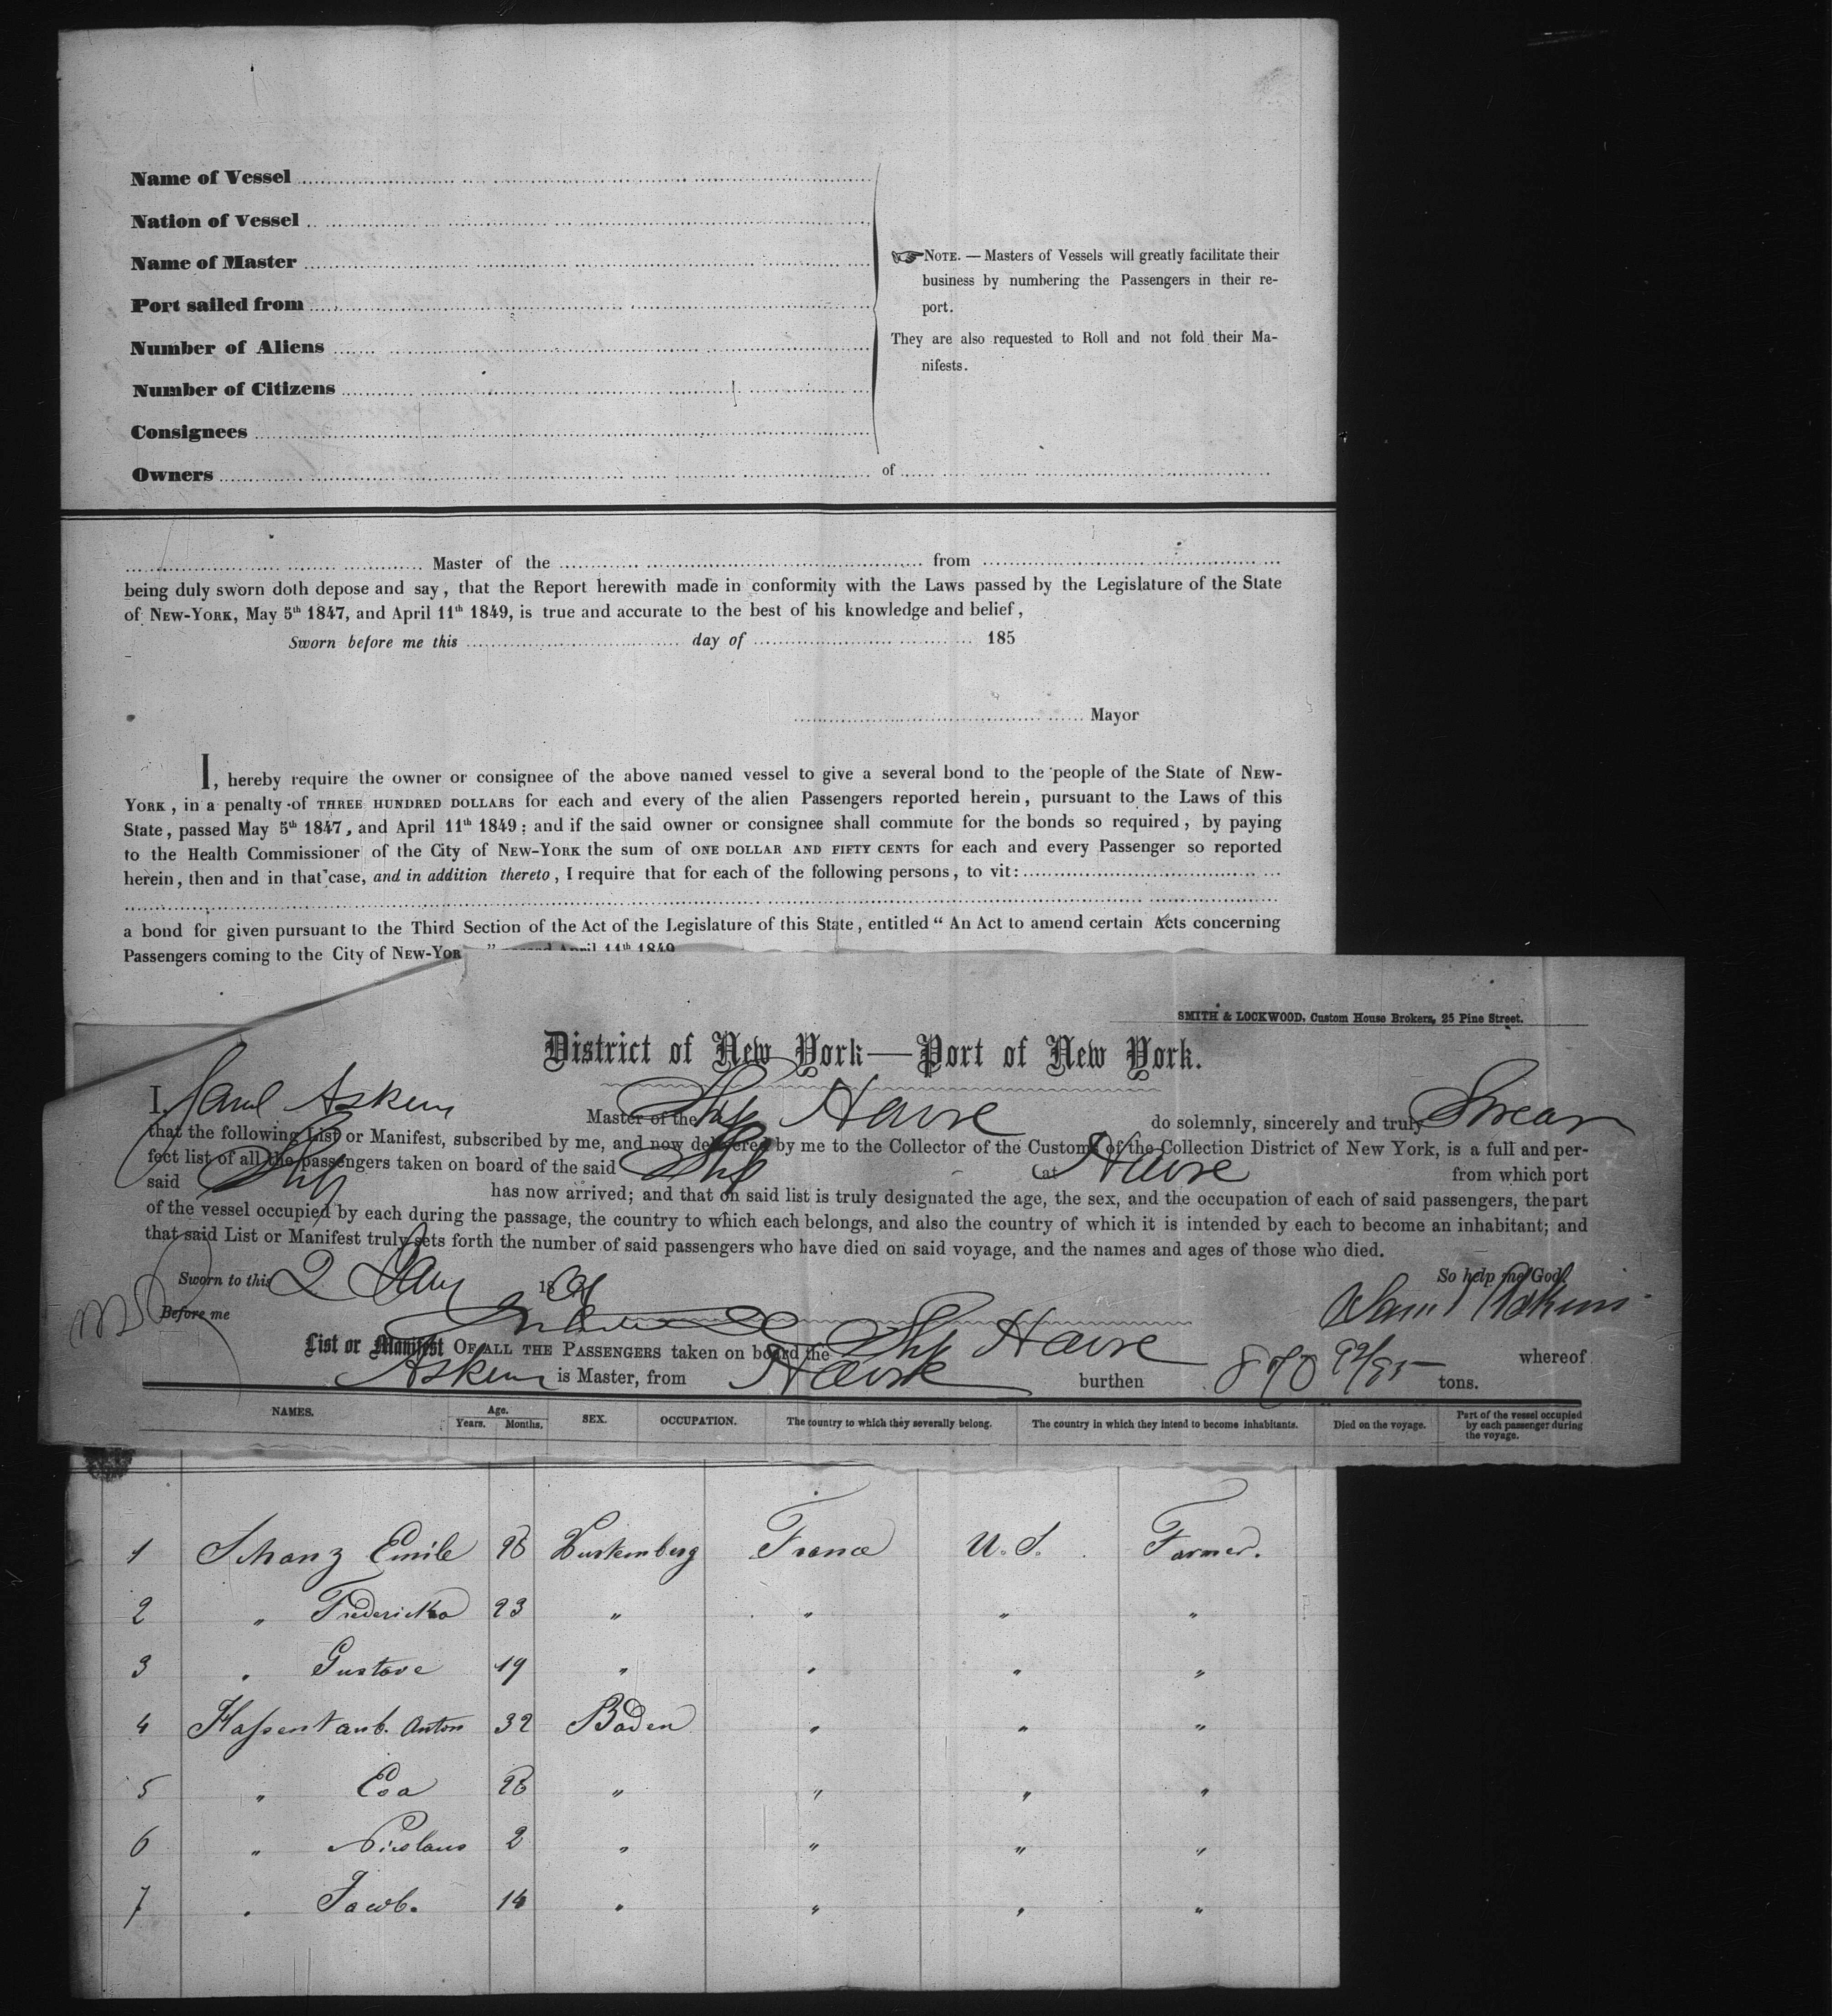 Name of Vessel
Nation of Vessel
Name of Master
Port sailed from
Number of Aliens
Number of Citizens
Consignees
Owners of
☞ NOTE. — Masters of Vessels will greatly facilitate their
business by numbering the Passengers in their re-
port.
They are also requested to Roll and not fold their Ma-
nifests.
Master of the from
being duly sworn doth depose and say, that the Report herewith made in conformity with the Laws passed by the Legislature of the State
of NEW-YORK, May 5th 1847, and April 11th 1849, is true and accurate to the best of his knowledge and belief,
Sworn before me this day of 185
Mayor
I, hereby require the owner or consignee of the above named vessel to give a several bond to the people of the State of NEW-
YORK, in a penalty of THREE HUNDRED DOLLARS for each and every of the alien Passengers reported herein, pursuant to the Laws of this
State, passed May 5th 1847, and April 11th 1849; and if the said owner or consignee shall commute for the bonds so required, by paying
to the Health Commissioner of the City of NEW-YORK the sum of ONE DOLLAR AND FIFTY CENTS for each and every Passenger so reported
herein, then and in that case, and in addition thereto, I require that for each of the following persons, to vit:
a bond for given pursuant to the Third Section of the Act of the Legislature of this State, entitled "An Act to amend certain Acts concerning
Passengers coming to the City of NEW-YOR " April 11th 1849
SMITH & LOCKWOOD, Custom House Brokers, 25 Pine Street.
District of New York—Port of New York.
I, Saml Askins Master of the Ship Havre do solemnly, sincerely and truly Swear
that the following List or Manifest, subscribed by me, and now delivered by me to the Collector of the Customs of the Collection District of New York, is a full and per-
fect list of all the passengers taken on board of the said Ship at Havre from which port
said Ship has now arrived; and that on said list is truly designated the age, the sex, and the occupation of each of said passengers, the part
of the vessel occupied by each during the passage, the country to which each belongs, and also the country of which it is intended by each to become an inhabitant; and
that said List or Manifest truly sets forth the number of said passengers who have died on said voyage, and the names and ages of those who died.
Sworn to this 2 18 So help me God.
Before me Saml Askins
List or Manifest OF ALL THE PASSENGERS taken on board the Ship Havre whereof
Askins is Master, from Havre burthen 870 92/95 tons.
NAMES. Age. Years. Months. SEX. OCCUPATION. The country to which they severally belong. The country in which they intend to become inhabitants. Died on the voyage. Part of the vessel occupied by each passenger during the voyage.
1 Schanz Emile 28 Wurtemberg France U.S. Farmer.
2 " Fredericka 23 " " " "
3 " Gustave 19 " " " "
4 Hassentaub. Anton 32 Baden " " "
5 " Eva 28 " " " "
6 " Nicolaus 2 " " " "
7 " Jacob. 14 " " " "